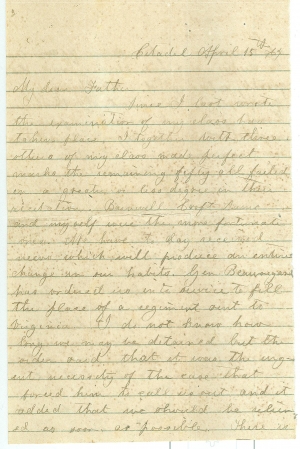 Citadel April 15th
My dear Fath
Since I last wrote
the examination of my class has
taken place. I together with three
others of my class made perfect
marks the remaining fifty all failed
in a greater or less degree in their
and myself were the more fortunate
ones. We have to day received
news which will produce an entire
change in our habits. Gen Beauregard
has ordered us into service to fill
the place of a regiment sent to
Virginia. I do not know how
long we may be detained but the
order said that it was the urg-
ent necessity of the case that
forced him to call us out and it
added that we should be reliev-
ed as soon as possible. There is